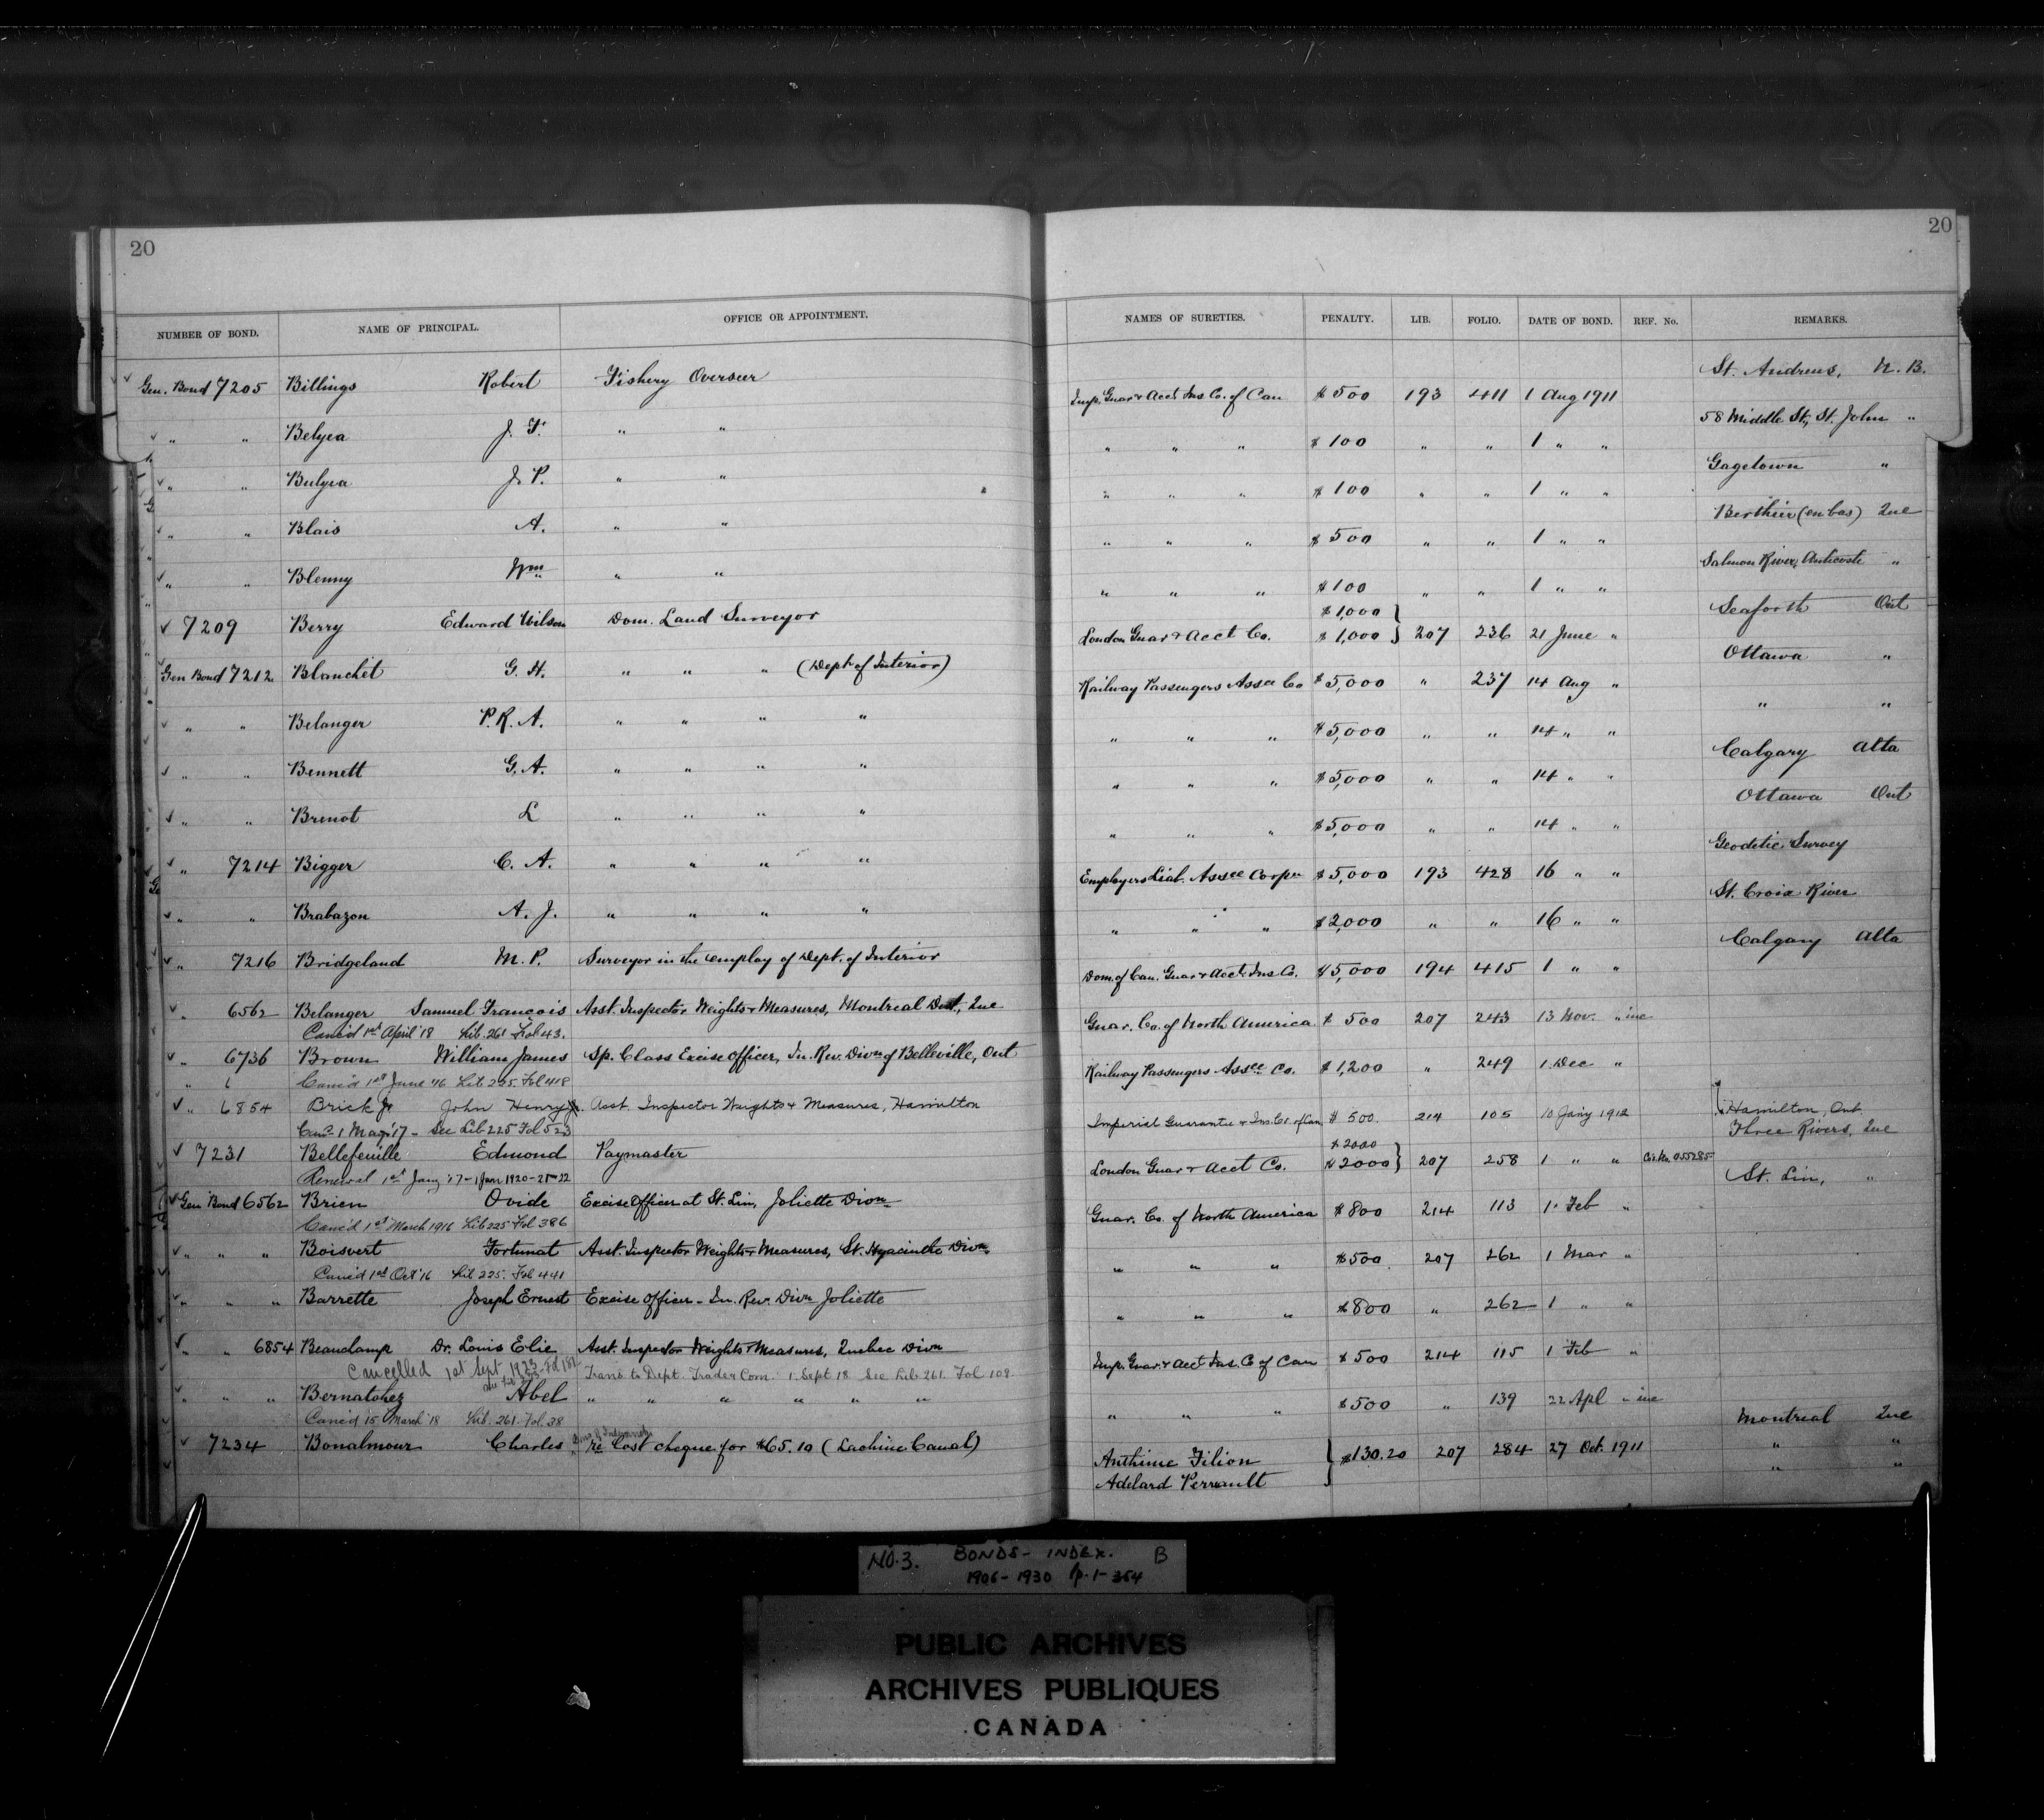 20
20
NUMBER OF BOND. NAME OF PRINCIPAL. OFFICE OR APPOINTMENT. NAMES OF SURETIES. PENALTY. LIB. FOLIO. DATE OF BOND. REF. No. REMARKS.
Gen. Bond 7205 Billings Robert Fishery Overseer Imp. Guar & Acct Ins Co. of Can $500 193 411 1 Aug 1911 St. Andrews, N. B.
" " Belyea J. F. " " " " " $100 " " 1 " " 58 Middle St, St. John "
" " Bulyea J. P. " " " " " $100 " " 1 " " Gagetown "
" " Blais A. " " " " " $500 " " 1 " " Berthier (en bas) Que
" " Blenny Wm " " " " " $100 " " 1 " " Salmon River, Anticosti "
$1,000
7209 Berry Edward Wilson Dom. Land Surveyor London Guar & Acct Co. $1,000 207 236 21 June " Seaforth Ont
Gen Bond 7212 Blanchet G. H. " " " (Dept of Interior) Railway Passengers Assce Co $5,000 " 237 14 Aug " Ottawa "
" " Belanger P. R. A. " " " " " " " $5,000 " " 14 " " " "
" " Bennett G. A. " " " " " " " $5,000 " " 14 " " Calgary Alta
" " Brenot L " " " " " " " $5,000 " " 14 " " Ottawa Ont
" 7214 Bigger C. A. " " " " Employers Liab. Assce Corpn $5,000 193 428 16 " " Geodetic Survey
" " Brabazon A. J. " " " " " " " $2,000 " " 16 " " St. Croix River
" 7216 Bridgeland M. P. Surveyor in the employ of Dept. of Interior Dom. of Can. Guar & Acct. Ins Co. $5,000 194 415 1 " " Calgary Alta
" 6562 Belanger Samuel Francois Asst. Inspector Weights & Measures, Montreal Dist, Que Guar. Co. of North America $500 207 243 13 Nov. " inc
Canc'd 1st April '18 Lib. 261 Fol 43.
" 6736 Brown William James Sp. Class Excise Officer, In. Rev. Divn of Belleville, Ont Railway Passengers Assce Co. $1,200 " 249 1 Dec "
" Canc'd 1st June '16 Lib 225 Fol 418
" 6854 Brick Jr John Henry Jr. Asst. Inspector Weights & Measures, Hamilton Imperial Guarantee & Ins. Co. of Can $500. 214 105 10 Jan'y 1912 Hamilton, Ont.
Canc. 1 May '17 - See Lib 225 Fol 523
$2000
7231 Bellefeuille Edmond Paymaster London Guar & Acct Co. $2000 207 258 1 " " 055285 Three Rivers, Que
Renewal 1st Jany '17 - 1 Jan 1920 - 21 - 22
Gen Bond 6562 Brien Ovide Excise Officer at St. Lin, Joliette Divn Guar. Co. of North America $800 214 113 1 Feb " St. Lin, "
Canc'd 1st March 1916 Lib 225 Fol 386
" " " Boisvert Fortunat Asst. Inspector Weights & Measures, St. Hyacinthe Divn " " " $500 207 262 1 Mar "
Canc'd 1st Oct '16 Lib 225. Fol 441
" " " Barrette Joseph Ernest Excise Officer - In. Rev. Divn Joliette " " " $800 " 262 1 " "
" " 6854 Beauchamp Dr. Louis Elie Asst. Inspector Weights & Measures, Quebec Divn Imp. Guar. & Acct Ins. Co of Can $500 214 115 1 Feb "
Cancelled 1st Sept 1923 Trans. to Dept. Trade & Com. 1. Sept 18 See Lib 261. Fol 109.
" " " Bernatchez Abel " " " " " " " " $500 " 139 22 Apl " inc
Canc'd 15 March '18 Lib. 261. Fol. 38
7234 Bonalmour Charles re lost cheque for $65.10 (Lachine Canal) Anthime Filion $130.20 207 284 27 Oct. 1911 Montreal Que
" "
Adelard Perrault " "
NO. 3. BONDS - INDEX. B
1906 - 1930 p. 1 - 354
PUBLIC ARCHIVES
ARCHIVES PUBLIQUES
CANADA